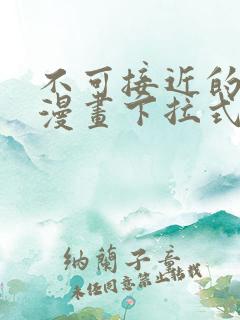 不可接近的
漫畫下拉式
納蘭子意
未经同意禁止转载